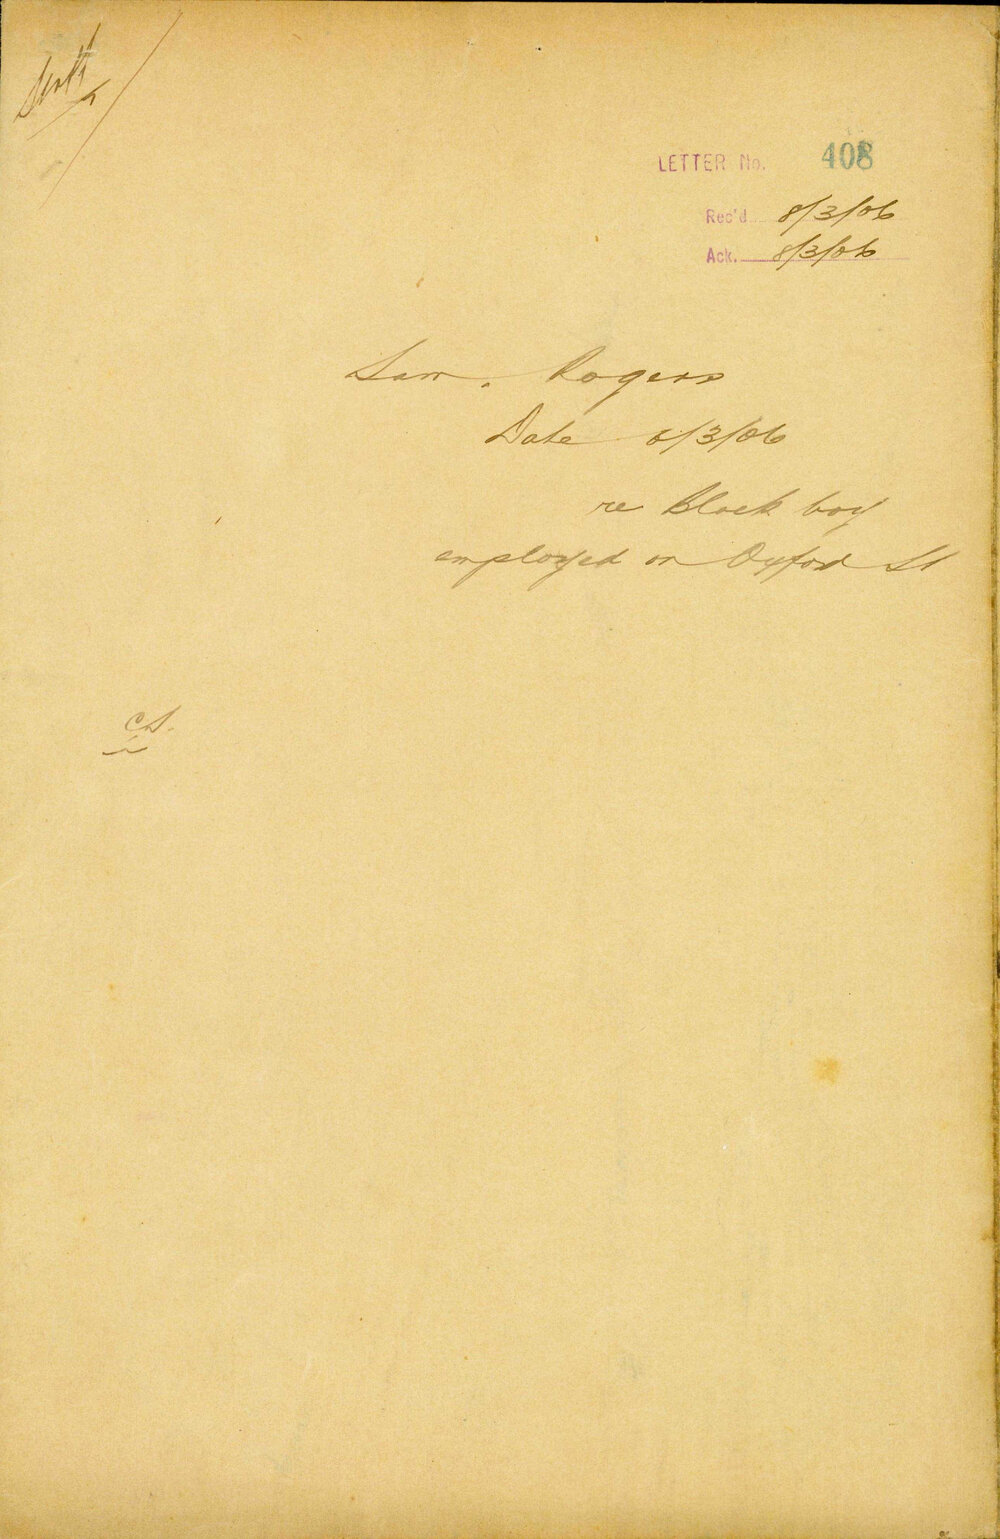 LETTER No. 408
Rec'd 8/3/06
Ack. 8/3/06
Sam. Rogers
Date 6/3/06
re Block boy
employed on Oxford St
C.S.